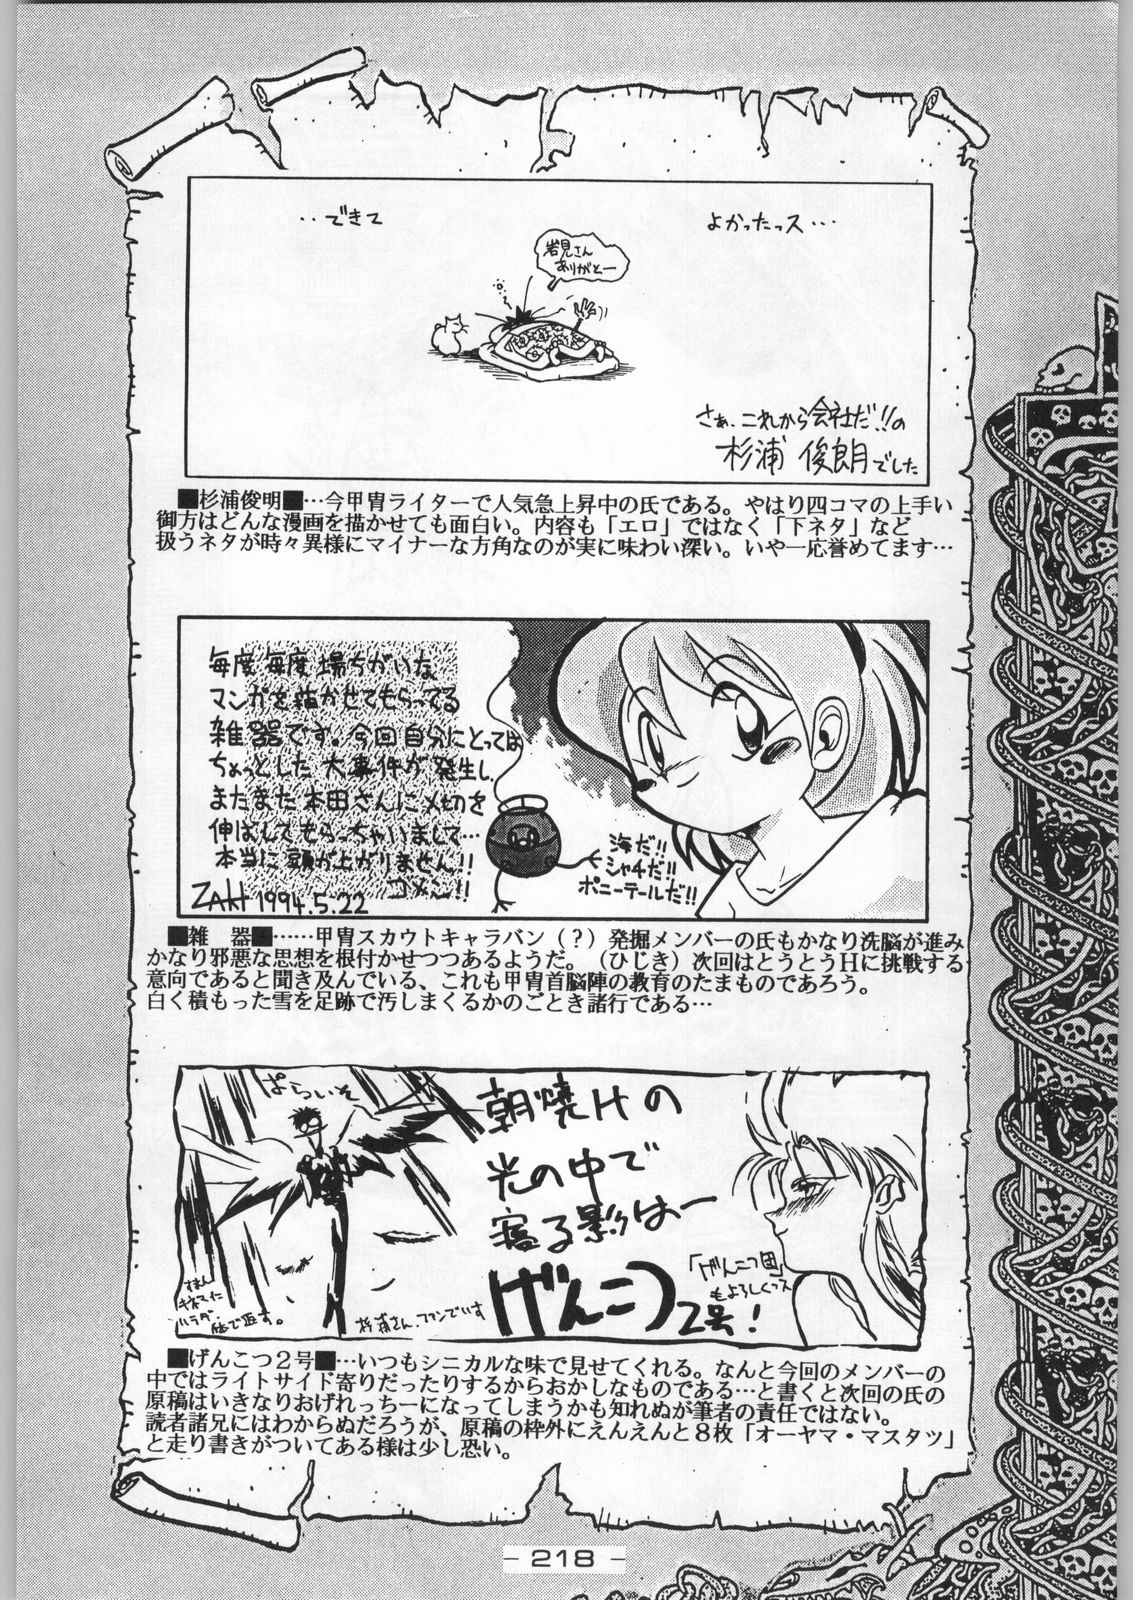 ‥できて
よかったっス…
岩見さん
ありがとー
さぁ、これから会社だ!!の
杉浦 俊朗でした
■杉浦俊明■…今甲冑ライターで人気急上昇中の氏である。やはり四コマの上手い
御方はどんな漫画を描かせても面白い。内容も「エロ」ではなく「下ネタ」など
扱うネタが時々異様にマイナーな方角なのが実に味わい深い。いや一応誉めてます…
毎度毎度場ちがいな
マンガを描かせてもらってる
雑器です。今回自分にとっては
ちょっとした大事件が発生し、
またまた本田さんに〆切を
伸ばしてもらっちゃいまして…
本当に頭が上がりません!!
ゴメン!!
ZAKI 1994.5.22
海だ!!
シャチだ!!
ポニーテールだ!!
■雑 器■……甲冑スカウトキャラバン（？）発掘メンバーの氏もかなり洗脳が進み
かなり邪悪な思想を根付かせつつあるようだ。（ひじき）次回はとうとうＨに挑戦する
意向であると聞き及んでいる、これも甲冑首脳陣の教育のたまものであろう。
白く積もった雪を足跡で汚しまくるかのごとき諸行である…
ぱらいそ
朝焼けの
光の中で
寝る影はー
げんこつ2号!
「げんこつ団」
もよろしくっス
杉浦さん、ファンでいす
■げんこつ２号■…いつもシニカルな味で見せてくれる。なんと今回のメンバーの
中ではライトサイド寄りだったりするからおかしなものである…と書くと次回の氏の
原稿はいきなりおげれっちーになってしまうかも知れぬが筆者の責任ではない。
読者諸兄にはわからぬだろうが、原稿の枠外にえんえんと８枚「オーヤマ・マスタツ」
と走り書きがついてある様は少し恐い。
- 218 -